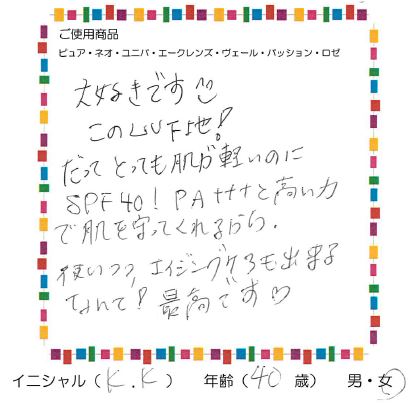 ご使用商品
ピュア・ネオ・ユニバ・エークレンズ・ヴェール・パッション・ロゼ
大好きです
このUV下地!
だって とっても肌が軽いのに
SPF40! PA+++と高い力
で肌を守ってくれるから.
使いつつ, エイジングケアも出来る
なんて! 最高です♡
イニシャル(K.K) 年齢(40歳) 男・女